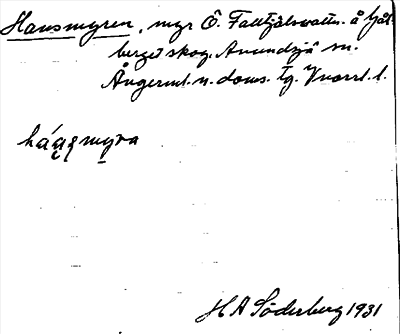 Hansmyren, myr Ö. Falltjälsvattn. å Kjäl
berget skog. Anundsjö sn.
Ångerml. n. doms. tg. Vnorrl. l.
håa̤smy̱ra
H A Söderberg 1931